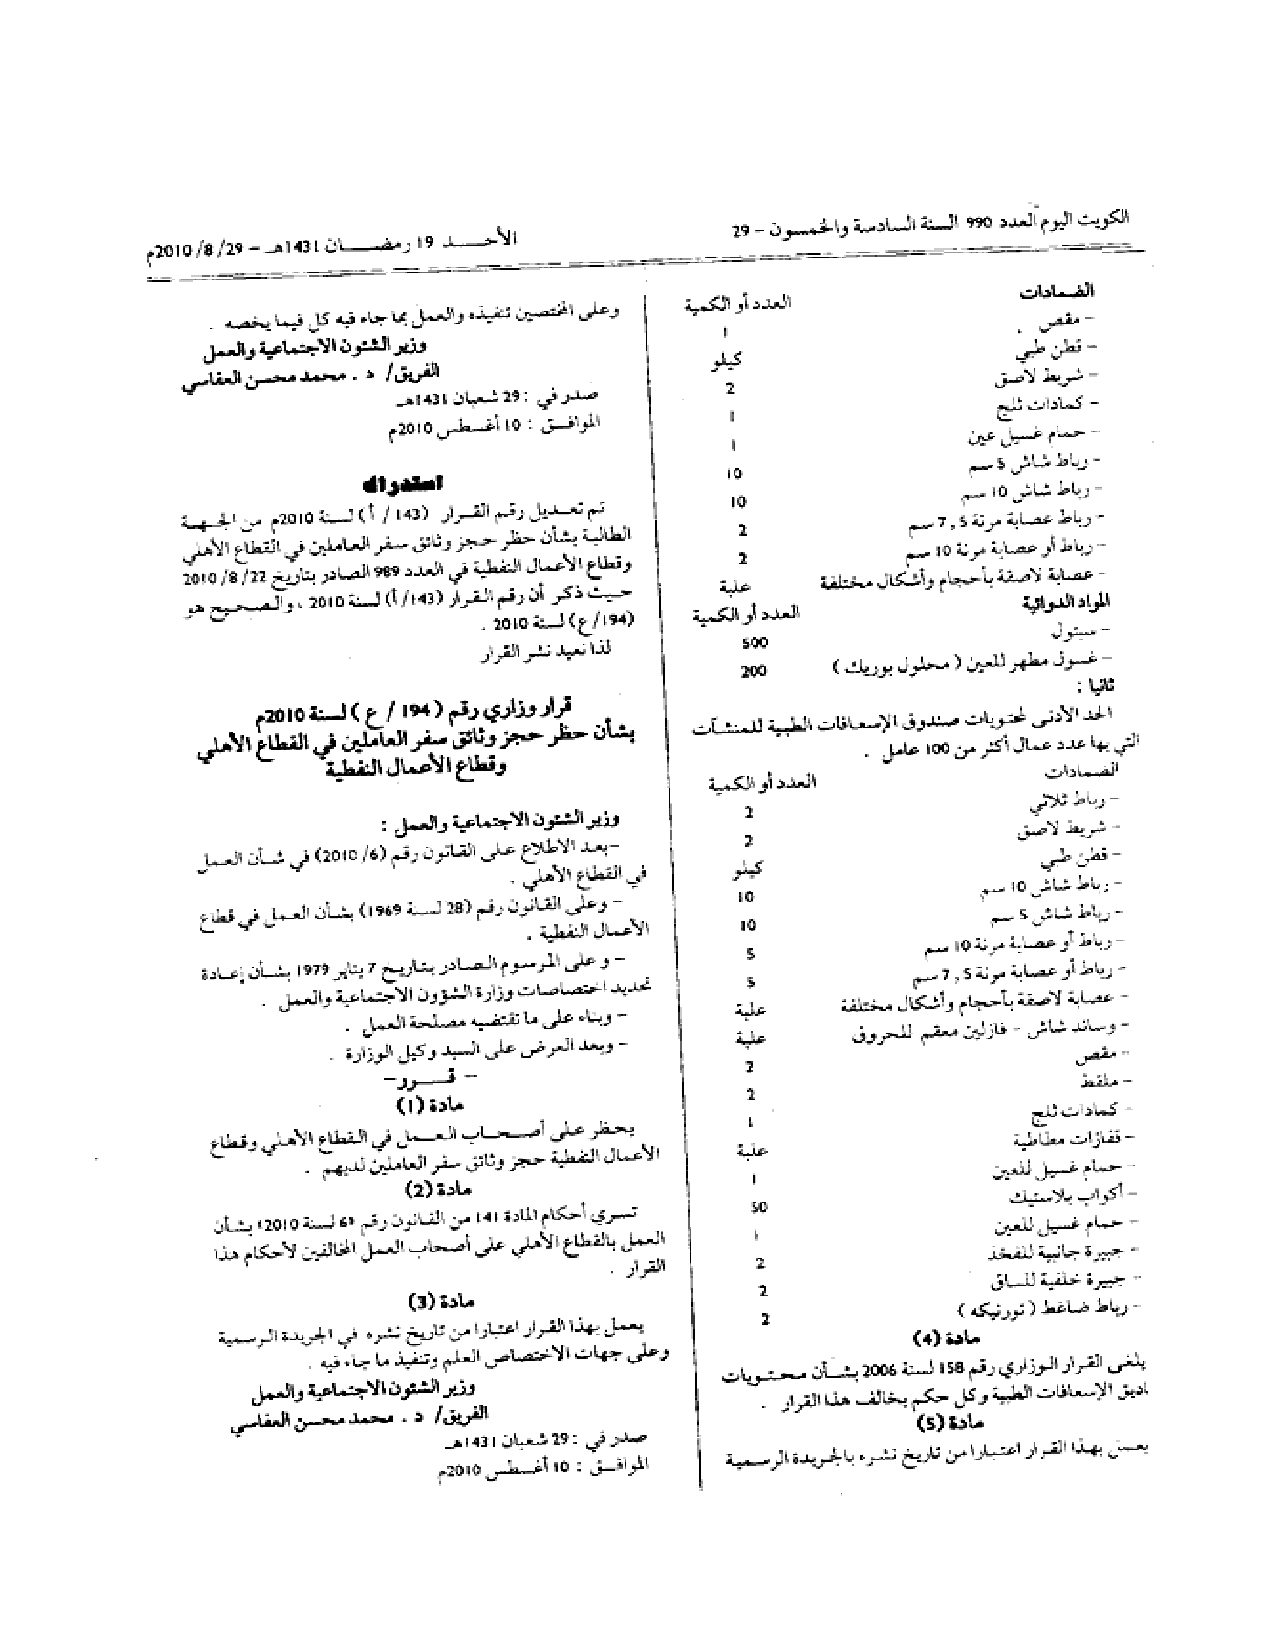 الكويت اليوم العدد 990 السنة السادسة والخمسون - 29
الأحـــد 19 رمضــان 1431هـ - 29/ 8/ 2010م
الضمادات
العدد أو الكمية
- مقص .
1
- قطن طبي
كيلو
- شريط لاصق
2
- كمادات ثلج
1
- حمام غسيل عين
1
- رباط شاش 5 سم
10
- رباط شاش 10 سم
10
- رباط عصابة مرنة 7,5 سم
2
- رباط أو عصابة مرنة 10 سم
2
- عصابة لاصقة بأحجام وأشكال مختلفة
علبة
المواد الدوائية
العدد أو الكمية
- سيتول
500
- غسول مطهر للعين ( محلول بوريك )
200
ثانيا :
الحد الأدنى لمحتويات صندوق الإسعافات الطبية للمنشآت
التي بها عدد عمال أكثر من 100 عامل .
الضمادات
العدد أو الكمية
- رباط ثلاثي
2
- شريط لاصق
2
- قطن طبي
كيلو
- رباط شاش 10 سم
10
- رباط شاش 5 سم
10
- رباط أو عصابة مرنة 10 سم
5
- رباط أو عصابة مرنة 7,5 سم
5
- عصابة لاصقة بأحجام وأشكال مختلفة
علبة
- وساند شاش - فازلين معقم للحروق
علبة
- مقص
2
- ملقط
2
- كمادات ثلج
1
- قفازات مطاطية
علبة
- حمام غسيل للعين
1
- أكواب بلاستيك
50
- حمام غسيل للعين
1
- جبيرة جانبية للفخذ
2
- جبيرة خلفية للساق
2
- رباط ضاغط ( تورنيكه )
2
مادة (4)
يلغى القرار الوزاري رقم 158 لسنة 2006 بشأن محتويات
اديق الإسعافات الطبية وكل حكم يخالف هذا القرار .
مادة (5)
يعمل بهذا القرار اعتبارا من تاريخ نشره بالجريدة الرسمية
وعلى المختصين تنفيذه والعمل بما جاء فيه كل فيما يخصه .
وزير الشئون الاجتماعية والعمل
الفريق/ د . محمد محسن العفاسي
صدر في : 29 شعبان 1431هـ
الموافق : 10 أغسطس 2010م
استدراك
تم تعديل رقم القرار (143/ أ) لسنة 2010م من الجهة
الطالبة بشأن حظر حجز وثائق سفر العاملين في القطاع الأهلي
وقطاع الأعمال النفطية في العدد 989 الصادر بتاريخ 22/ 8/ 2010
حيث ذكر أن رقم القرار (143/ أ) لسنة 2010 ، والصحيح هو
(194/ ع) لسنة 2010 .
لذا نعيد نشر القرار
قرار وزاري رقم (194 / ع ) لسنة 2010م
بشأن حظر حجز وثائق سفر العاملين في القطاع الأهلي
وقطاع الأعمال النفطية
وزير الشئون الاجتماعية والعمل :
-بعد الاطلاع على القانون رقم (6/ 2010) في شأن العمل
في القطاع الأهلي .
- وعلى القانون رقم (28 لسنة 1969) بشأن العمل في قطاع
الأعمال النفطية .
- وعلى المرسوم الصادر بتاريخ 7 يناير 1979 بشأن إعادة
تحديد اختصاصات وزارة الشؤون الاجتماعية والعمل .
- وبناء على ما تقتضيه مصلحة العمل .
- وبعد العرض على السيد وكيل الوزارة .
- قـــرر-
مادة (1)
يحظر على أصحاب العمل في القطاع الأهلي وقطاع
الأعمال النفطية حجز وثائق سفر العاملين لديهم .
مادة (2)
تسري أحكام المادة 141 من القانون رقم (6 لسنة 2010) بشأن
العمل بالقطاع الأهلي على أصحاب العمل المخالفين لأحكام هذا
القرار .
مادة (3)
يعمل بهذا القرار اعتبارا من تاريخ نشره في الجريدة الرسمية
وعلى جهات الاختصاص العلم وتنفيذ ما جاء فيه .
وزير الشئون الاجتماعية والعمل
الفريق/ د . محمد محسن العفاسي
صدر في : 29 شعبان 1431هـ
الموافق : 10 أغسطس 2010م